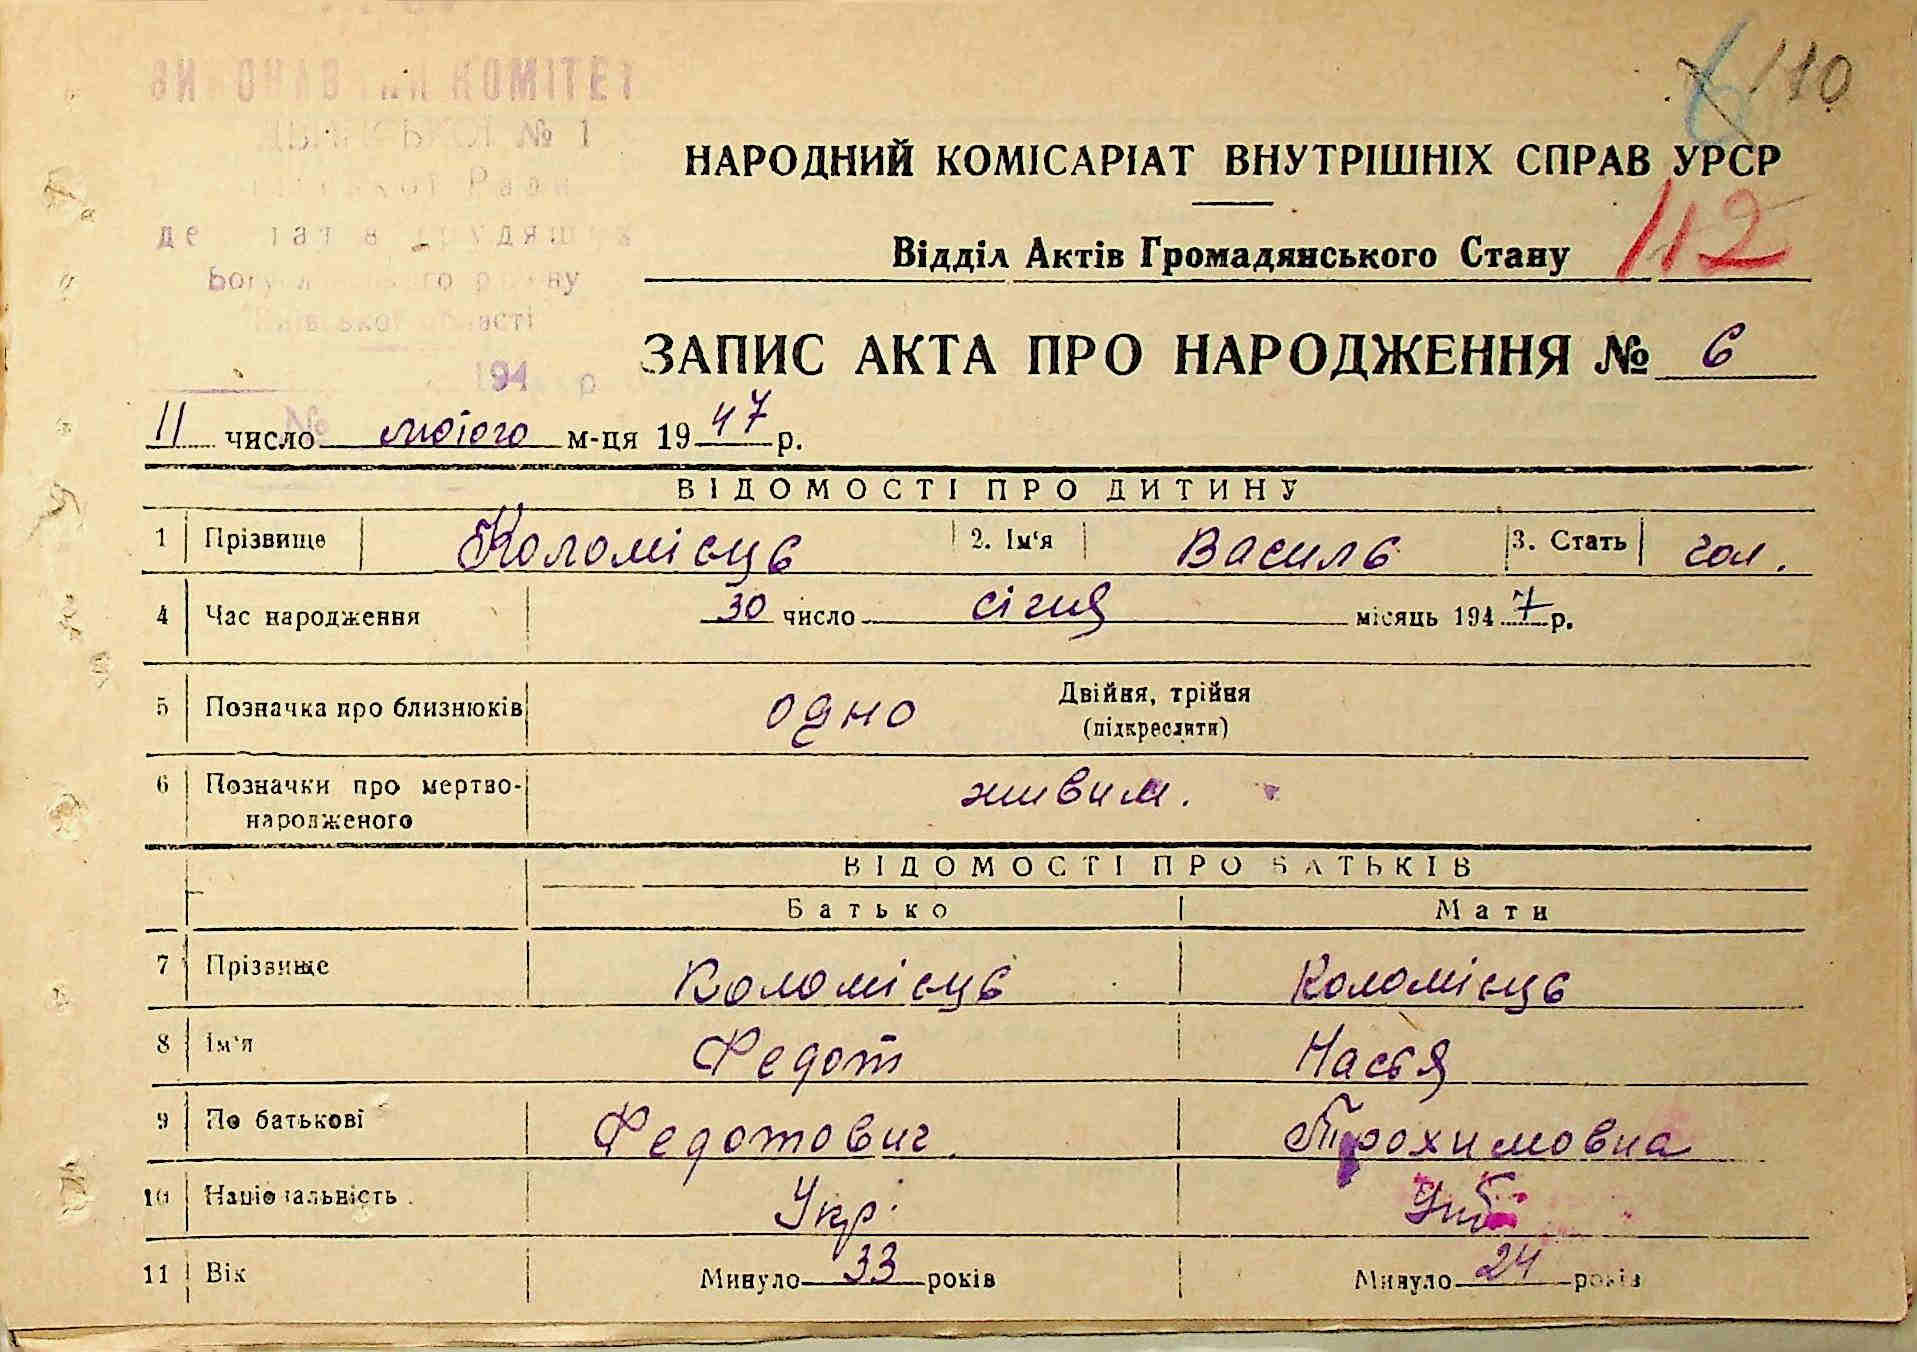 110
НАРОДНИЙ КОМІСАРІАТ ВНУТРІШНІХ СПРАВ УРСР
112
Відділ Актів Громадянського Стану
ЗАПИС АКТА ПРО НАРОДЖЕННЯ № 6
КОМІТЕТ
№ 1
194 р
№
11 число лютого м-ця 1947 р.
ВІДОМОСТІ ПРО ДИТИНУ
1 Прізвище Коломієць 2. Ім'я Василь 3. Стать чол.
4 Час народження 30 число січня місяць 1947 р.
5 Позначка про близнюків одно Двійня, трійня
(підкреслити)
6 Позначки про мертво-
народженого живим.
ВІДОМОСТІ ПРО БАТЬКІВ
Батько Мати
7 Прізвище Коломієць Коломієць
8 Ім'я Федот Настя
9 По батькові Федотович Трохимовна
10 Національність Укр.
11 Вік Минуло 33 років Минуло 24 років